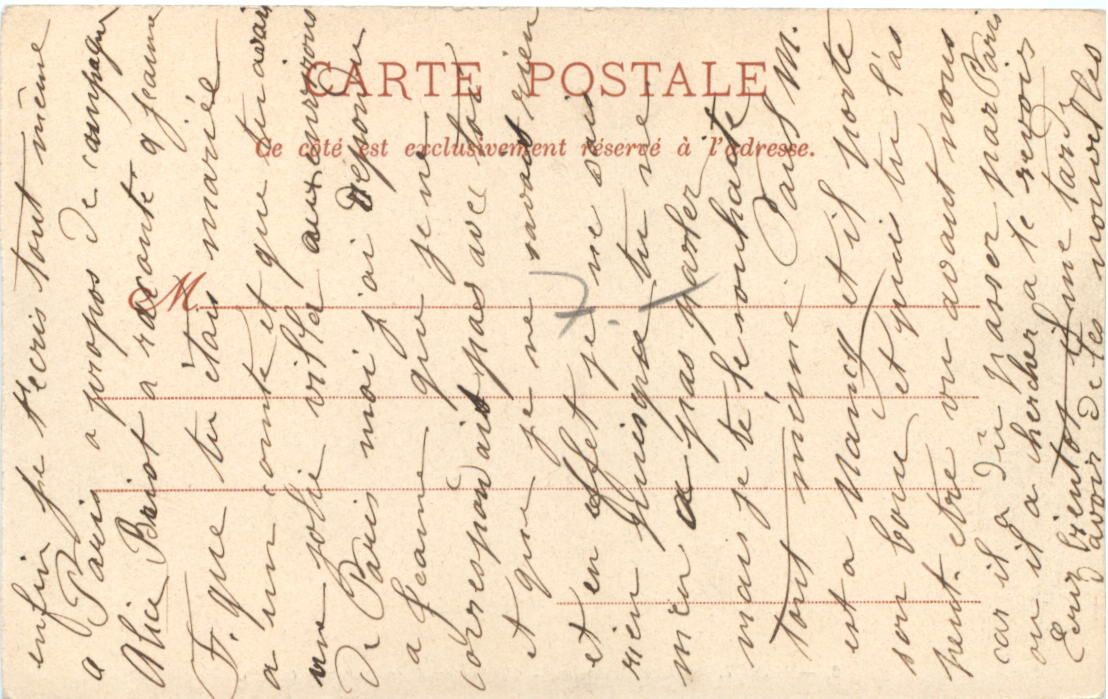 CARTE POSTALE
Ce côté est exclusivement réservé à l'adresse.
M
7.-
enfin je t'ecris tout même
a Paris a propos de campagn
Alice Briot a raconté a Jeanne
F. que tu étais mariée
a un comte et que tu avais
une jolie villa aux environs
de Paris moi j'ai repondu
a Jeanne que je ne
correspondait pas avec toi
et que je ne savais rien
et en effet je ne sais
rien puisque tu ne
m'en a pas parler
mais je te le souhaite
tout même. Paul M.
est a Nancy et il porte
son bouc et puis tu l'as
peut-etre vu avant nous
car il a dû passer par Paris
ou il a chercher a te revoir
bientot une tard
avoir de tes nouvelles